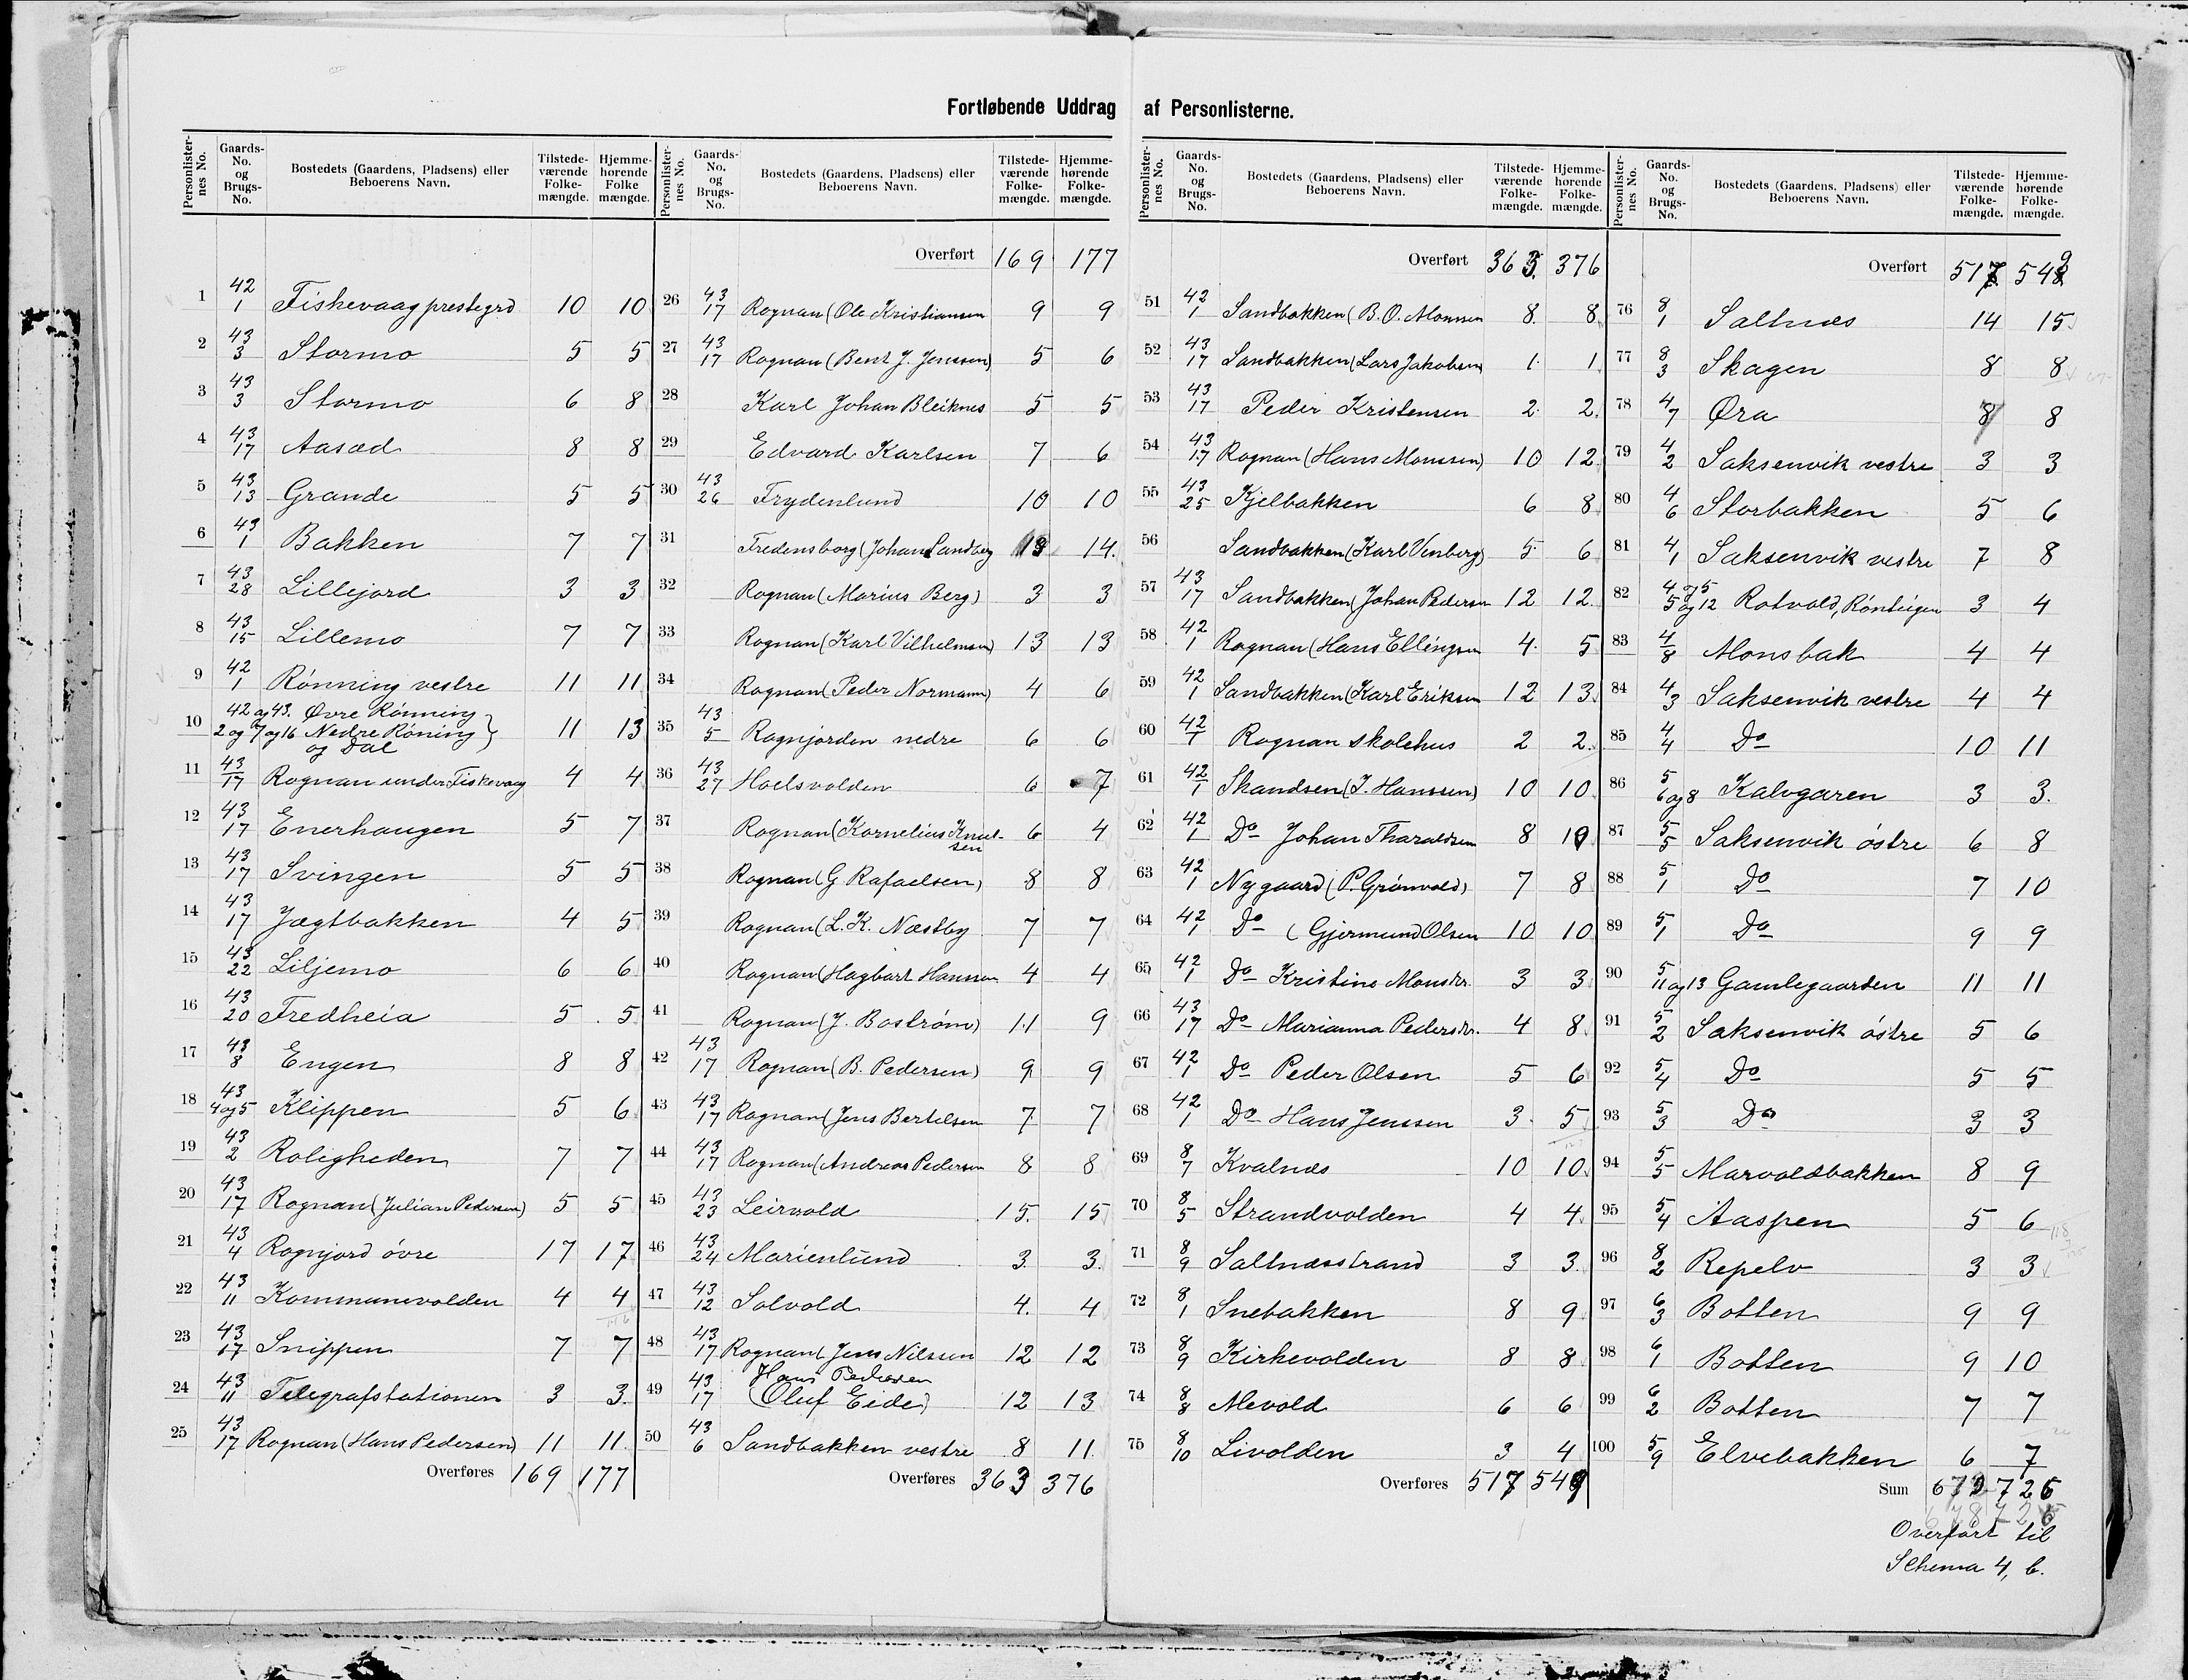 Fortløbende Uddrag af Personlisterne.
Personlister-nes No. Gaards-No. og Brugs-No. Bostedets (Gaardens, Pladsens) eller Beboerens Navn. Tilstede-værende Folke-mængde. Hjemme-hørende Folke mængde.
1 42/1 Fiskevaag prestegrd 10 10
2 43/3 Stormo 5 5
3 43/3 Stormo 6 8
4 43/17 Aasæd 8 8
5 43/13 Grande 5 5
6 43/1 Bakken 7 7
7 43/28 Lillejord 3 3
8 43/15 Lillemo 7 7
9 42/1 Rønning vestre 11 11
10 42 og 43. Øvre Rønning
2 og 7 og 16 Nedre Røning 11 13
og Dal
11 43/17 Rognan under Fiskevaag 4 4
12 43/17 Enerhaugen 5 7
13 43/17 Svingen 5 5
14 43/17 Jægtbakken 4 5
15 43/22 Liljemo 6 6
16 43/20 Fredheia 5 5
17 43/8 Engen 8 8
18 43/4 og 5 Klippen 5 6
19 43/2 Roligheden 7 7
20 43/17 Rognan (Julian Pedersen) 5 5
21 43/4 Rognjord øvre 17 17
22 43/11 Kommunevolden 4 4
23 43/17 Snippen 7 7
24 43/11 Telegrafstationen 3 3
25 43/17 Rognan (Hans Pedersen) 11 11
Overføres 169 177
Personlister-nes No. Gaards-No. og Brugs-No. Bostedets (Gaardens, Pladsens) eller Beboerens Navn. Tilstede-værende Folke-mængde. Hjemme-hørende Folke-mængde.
Overført 169 177
26 43/17 Rognan (Ole Kristiansen 9 9
27 43/17 Rognan (Bent J. Jenssen) 5 6
28 Karl Johan Bleiknes 5 5
29 Edvard Karlsen 7 6
30 43/26 Frydenlund 10 10
31 Fredensborg (Johan Sandberg 14.
32 Rognan (Marius Berg) 3 3
33 Rognan (Karl Vilhelmsen) 13 13
34 Rognan (Peder Normann) 4 6
35 43/5 Rognjorden nedre 6 6
36 43/27 Hoelsvolden 6 7
37 Rognan (Kornelius Knut-
sen 6 4
38 Rognan (G Rafaelsen) 8 8
39 Rognan (L. K. Næstby 7 7
40 Rognan (Hagbart Hanssen 4 4
41 Rognan (J. Bostrøm) 11 9
42 43/17 Rognan (B. Pedersen) 9 9
43 43/17 Rognan (Jens Bertelsen 7 7
44 43/17 Rognan (Andreas Pedersen 8 8
45 43/23 Leirvold 15. 15
46 43/24 Marienlund 3 3
47 43/12 Solvold 4. 4
48 43/17 Rognan (Jens Nilssen 12 12
Hans Pedersen
49 43/17 (Oluf Eide) 12 13
50 43/6 Sandbakken vestre 8 11
Overføres 363 376
Personlister-nes No. Gaards-No. og Brugs-No. Bostedets (Gaardens, Pladsens) eller Beboerens Navn. Tilstede-værende Folke-mængde. Hjemme-hørende Folke-mængde.
Overført 363. 376
51 42/1 Sandbakken (B. O. Monssen 8. 8
52 43/17 Sandbakken (Lars Jakobsen) 1 1
53 43/17 Peder Kristensen 2 2
54 43/17 Rognan (Hans Monssen) 10 12
55 43/25 Kjelbakken 6 8
56 Sandbakken (Karl Venberg) 5 6
57 43/17 Sandbakken (Johan Pedersen 12 12
58 42/1 Rognan (Hans Ellingsen 4 5
59 42/1 Sandbakken (Karl Eriksen 12 13
60 42/1 Rognan skolehus 2 2
61 42/1 Skandsen (J. Hanssen) 10 10
62 42/1 Do Johan Tharaldsen 8 10
63 42/1 Nygaard (P. Grønvold) 7 8
64 42/1 Do (Gjermund Olsen 10 10
65 42/1 Do Kristine Monsdr. 3 3
66 43/17 Do Marianna Pedersdr. 4 8
67 42/1 Do Peder Olsen 5 6
68 42/1 Do Hans Jenssen 3 5
69 8/7 Kvalnæs 10 10
70 8/5 Strandvolden 4 4
71 8/9 Saltnæsstrand 3 3
72 8/1 Snebakken 8 9
73 8/9 Kirkevolden 8 8
74 8/8 Mevold 6 6
75 8/10 Livolden 3 4
Overføres 517 549
Personlister-nes No. Gaards-No. og Brugs-No. Bostedets (Gaardens, Pladsens) eller Beboerens Navn. Tilstede-værende Folke-mængde. Hjemme-hørende Folke-mængde.
Overført 517 549
76 8/1 Saltnæs 14 15
77 8/3 Skagen 8 8
78 4/7 Øra 8 8
79 4/2 Saksenvik vestre 3 3
80 4/6 Storbakken 5 6
81 4/1 Saksenvik vestre 7 8
82 4 og 5/5 og 12 Rotvold, Rønteigen 3 4
83 4/8 Monsbak 4 4
84 4/3 Saksenvik vestre 4 4
85 4/4 Do 10 11
86 5/6 og 8 Kalvgaren 3 3.
87 5/5 Saksenvik østre 6 8
88 5/1 Do 7 10
89 5/1 Do 9 9
90 5/11 og 13 Gamlegaarden 11 11
91 5/2 Saksenvik østre 5 6
92 5/4 Do 5 5
93 5/3 Do 3 3
94 5/5 Marvoldbakken 8 9
95 5/4 Aaspen 5 6
96 8/2 Repelv 3 3
97 6/3 Botten 9 9
98 6/1 Botten 9 10
99 6/2 Botten 7 7
100 5/9 Elvebakken 6 7
Sum 726
Overført til
Schema 4, b.